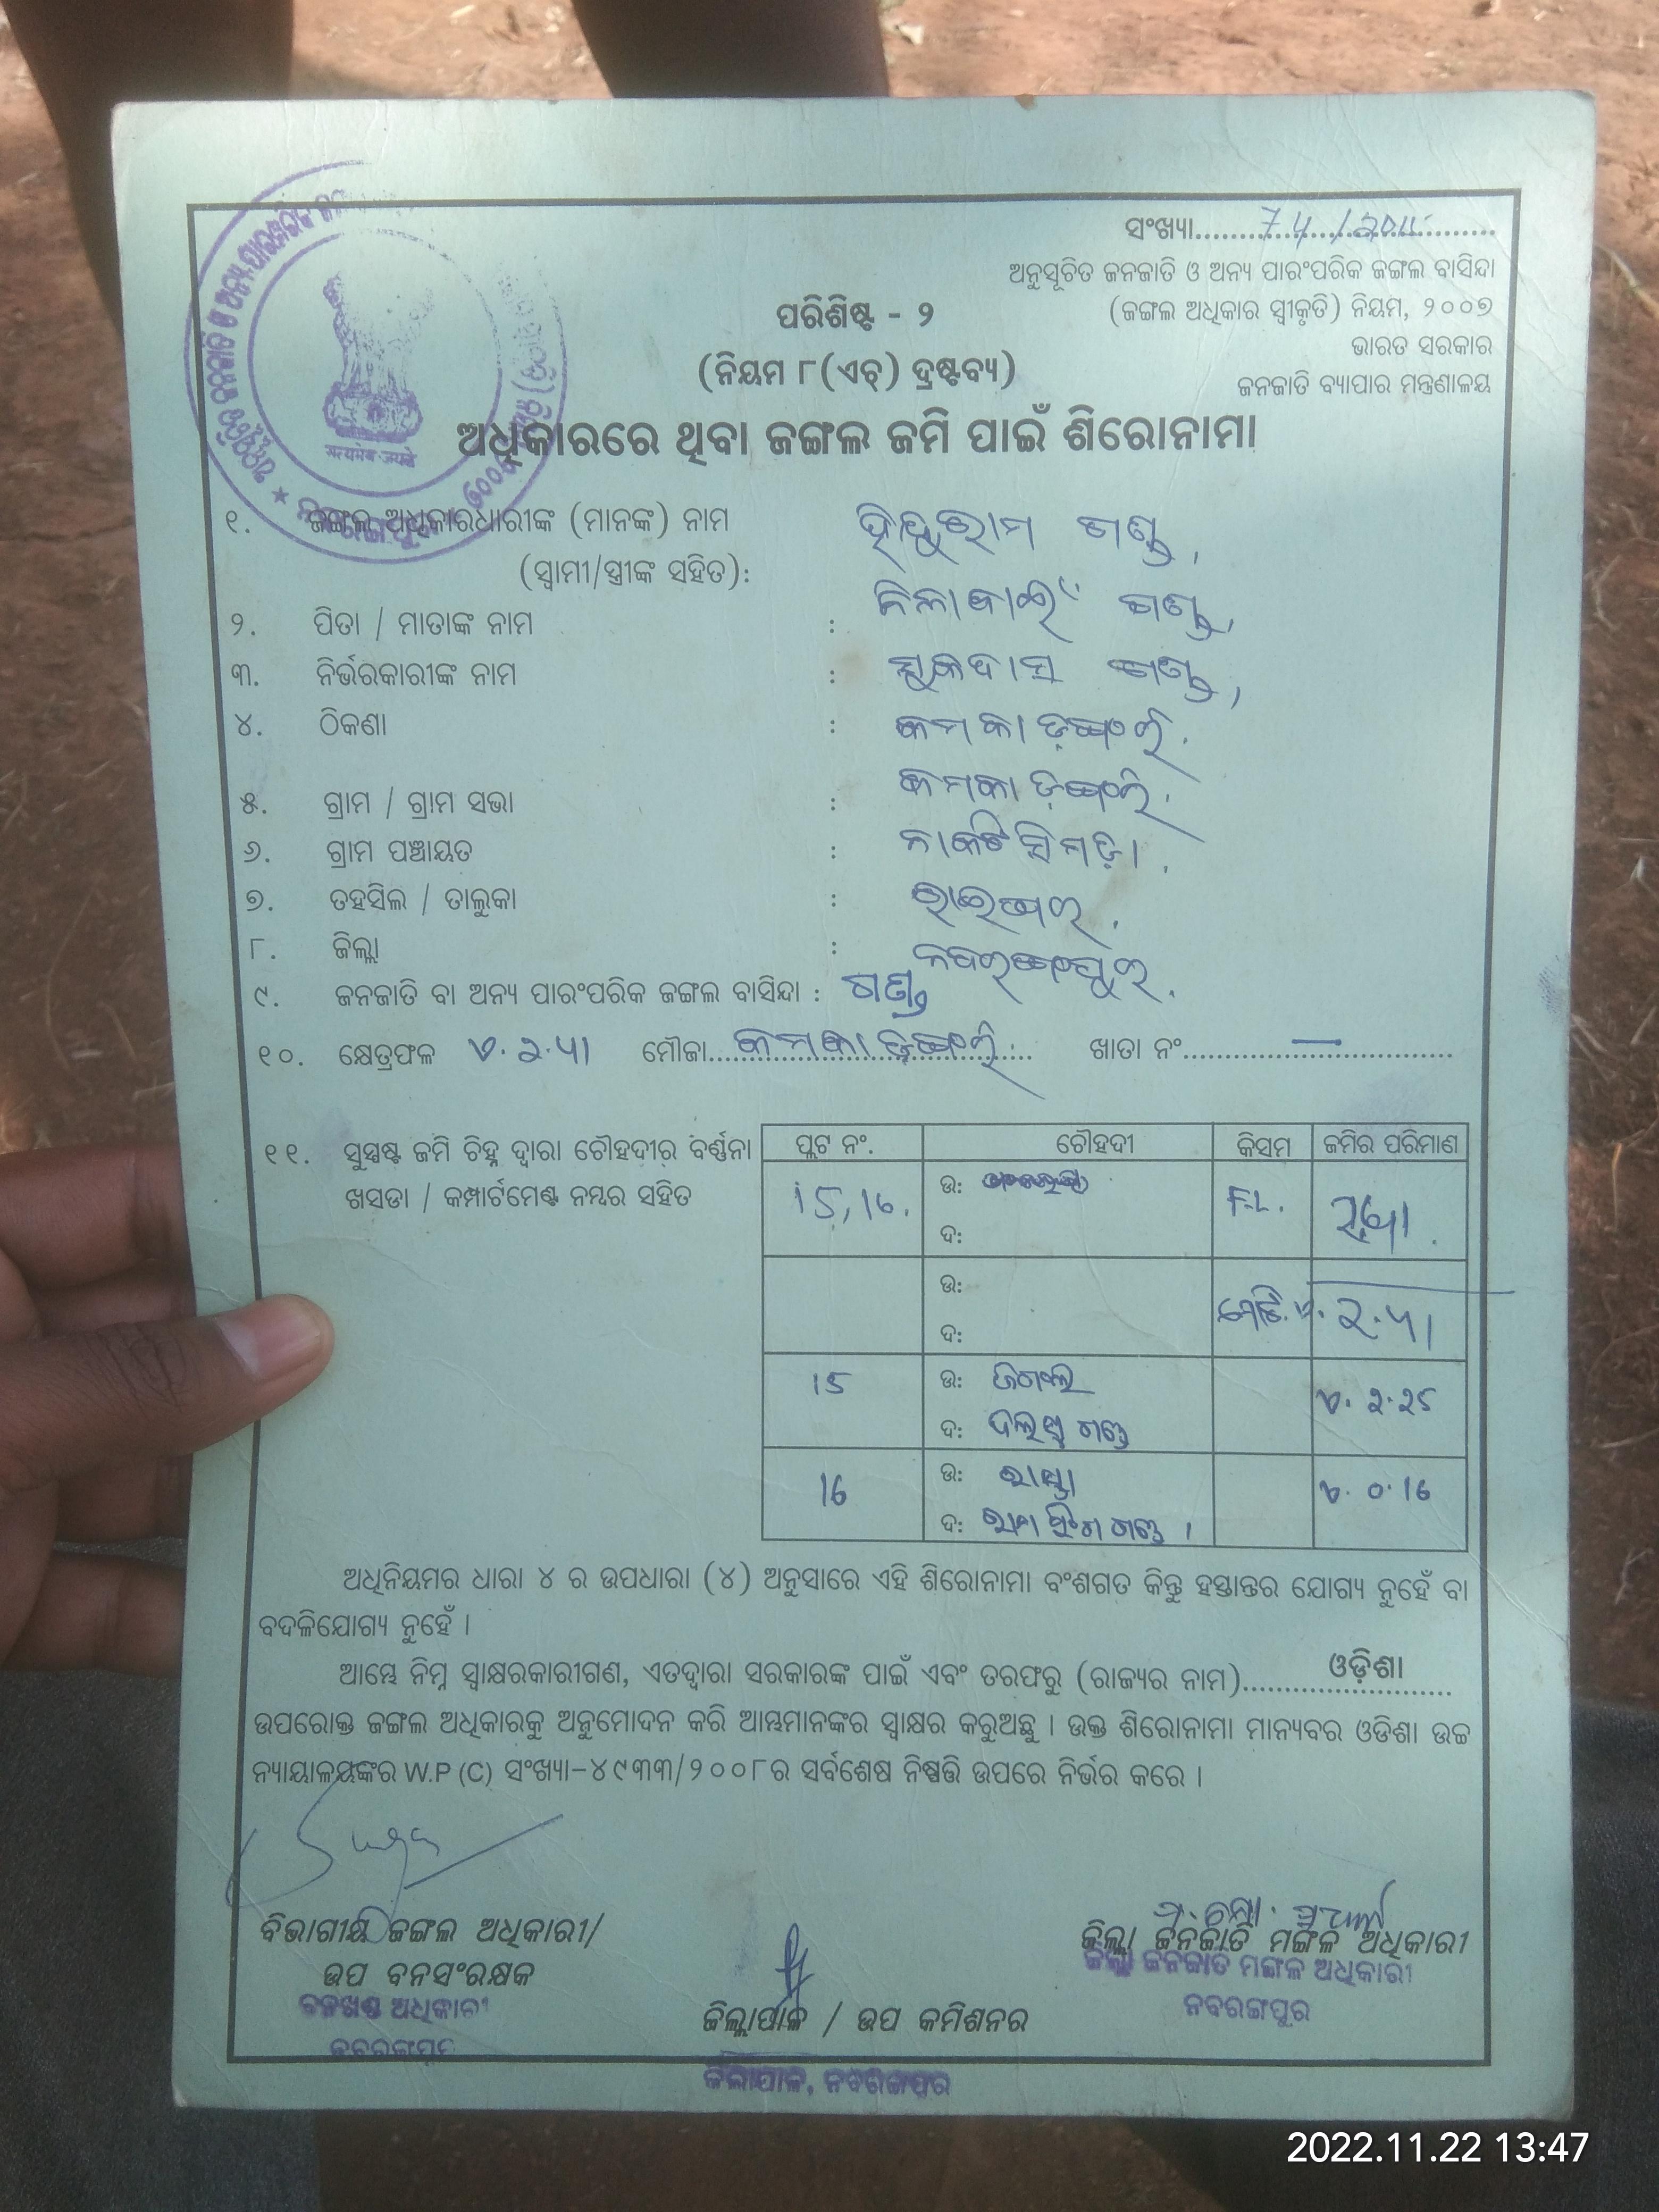 ସଂଖ୍ୟା..........74/2011..........
ଅନୁସୂଚିତ ଜନଜାତି ଓ ଅନ୍ୟ ପାରଂପରିକ ଜଙ୍ଗଲ ବାସିନ୍ଦା
(ଜଙ୍ଗଲ ଅଧିକାର ସ୍ୱୀକୃତି) ନିୟମ, ୨୦୦୭
ଭାରତ ସରକାର
ଜନଜାତି ବ୍ୟାପାର ମନ୍ତ୍ରଣାଳୟ
ପରିଶିଷ୍ଟ - ୨
(ନିୟମ ୮(ଏଚ୍) ଦ୍ରଷ୍ଟବ୍ୟ)
सत्यमेव जयते
ଅଧିକାରରେ ଥିବା ଜଙ୍ଗଲ ଜମି ପାଇଁ ଶିରୋନାମା
୧. ଜଙ୍ଗଲ ଅଧିକାରଧାରୀଙ୍କ (ମାନଙ୍କ) ନାମ ଗଣ୍ଡ,
(ସ୍ୱାମୀ/ସ୍ତ୍ରୀଙ୍କ ସହିତ):
୨. ପିତା / ମାତାଙ୍କ ନାମ : ଗଣ୍ଡ,
୩. ନିର୍ଭରକାରୀଙ୍କ ନାମ : ସୁକଦାସ ଗଣ୍ଡ,
୪. ଠିକଣା :
୫. ଗ୍ରାମ / ଗ୍ରାମ ସଭା :
୬. ଗ୍ରାମ ପଞ୍ଚାୟତ : ନାକଟିସିମଡ଼ା.
୭. ତହସିଲ / ତାଲୁକା : ରାଇଘର.
୮. ଜିଲ୍ଲା : ନବରଙ୍ଗପୁର.
୯. ଜନଜାତି ବା ଅନ୍ୟ ପାରଂପରିକ ଜଙ୍ଗଲ ବାସିନ୍ଦା : ଗଣ୍ଡ
୧୦. କ୍ଷେତ୍ରଫଳ ଏ. 2.41 ମୌଜା.......... ଖାତା ନଂ..........—..........
୧୧. ସୁସ୍ପଷ୍ଟ ଜମି ଚିହ୍ନ ଦ୍ୱାରା ଚୌହଦୀର ବର୍ଣ୍ଣନା
ଖସଡା / କମ୍ପାର୍ଟମେଣ୍ଟ ନମ୍ବର ସହିତ
ପ୍ଲଟ ନଂ. ଚୌହଦୀ କିସମ ଜମିର ପରିମାଣ
15, 16. ଉ: F.L.
ଦ:
ଉ: ମୋଟ. ଏ. 2.41
ଦ:
15 ଉ: ଏ. 2.25
ଦ: ଗଣ୍ଡ
16 ଉ: ରାସ୍ତା ଏ. 0.16
ଦ: ରାମ ସିଂଗ ଗଣ୍ଡ ।
ଅଧିନିୟମର ଧାରା ୪ ର ଉପଧାରା (୪) ଅନୁସାରେ ଏହି ଶିରୋନାମା ବଂଶଗତ କିନ୍ତୁ ହସ୍ତାନ୍ତର ଯୋଗ୍ୟ ନୁହେଁ ବା
ବଦଳିଯୋଗ୍ୟ ନୁହେଁ ।
ଆମ୍ଭେ ନିମ୍ନ ସ୍ୱାକ୍ଷରକାରୀଗଣ, ଏତଦ୍ୱାରା ସରକାରଙ୍କ ପାଇଁ ଏବଂ ତରଫରୁ (ରାଜ୍ୟର ନାମ)..........ଓଡ଼ିଶା..........
ଉପରୋକ୍ତ ଜଙ୍ଗଲ ଅଧିକାରକୁ ଅନୁମୋଦନ କରି ଆମ୍ଭମାନଙ୍କର ସ୍ୱାକ୍ଷର କରୁଅଛୁ । ଉକ୍ତ ଶିରୋନାମା ମାନ୍ୟବର ଓଡିଶା ଉଚ୍ଚ
ନ୍ୟାୟାଳୟଙ୍କର W.P (C) ସଂଖ୍ୟା-୪୯୩୩/୨୦୦୮ର ସର୍ବଶେଷ ନିଷ୍ପତ୍ତି ଉପରେ ନିର୍ଭର କରେ ।
ବିଭାଗୀୟ ଜଙ୍ଗଲ ଅଧିକାରୀ/
ଉପ ବନସଂରକ୍ଷକ
ବନଖଣ୍ଡ ଅଧିକାରୀ
ନବରଙ୍ଗପୁର
ଜିଲ୍ଲାପାଳ / ଉପ କମିଶନର
ଜିଲ୍ଲାପାଳ, ନବରଙ୍ଗପୁର
ଜିଲ୍ଲା ଜନଜାତି ମଙ୍ଗଳ ଅଧିକାରୀ
ଜିଲ୍ଲା ଜନଜାତି ମଙ୍ଗଳ ଅଧିକାରୀ
ନବରଙ୍ଗପୁର
2022.11.22 13:47